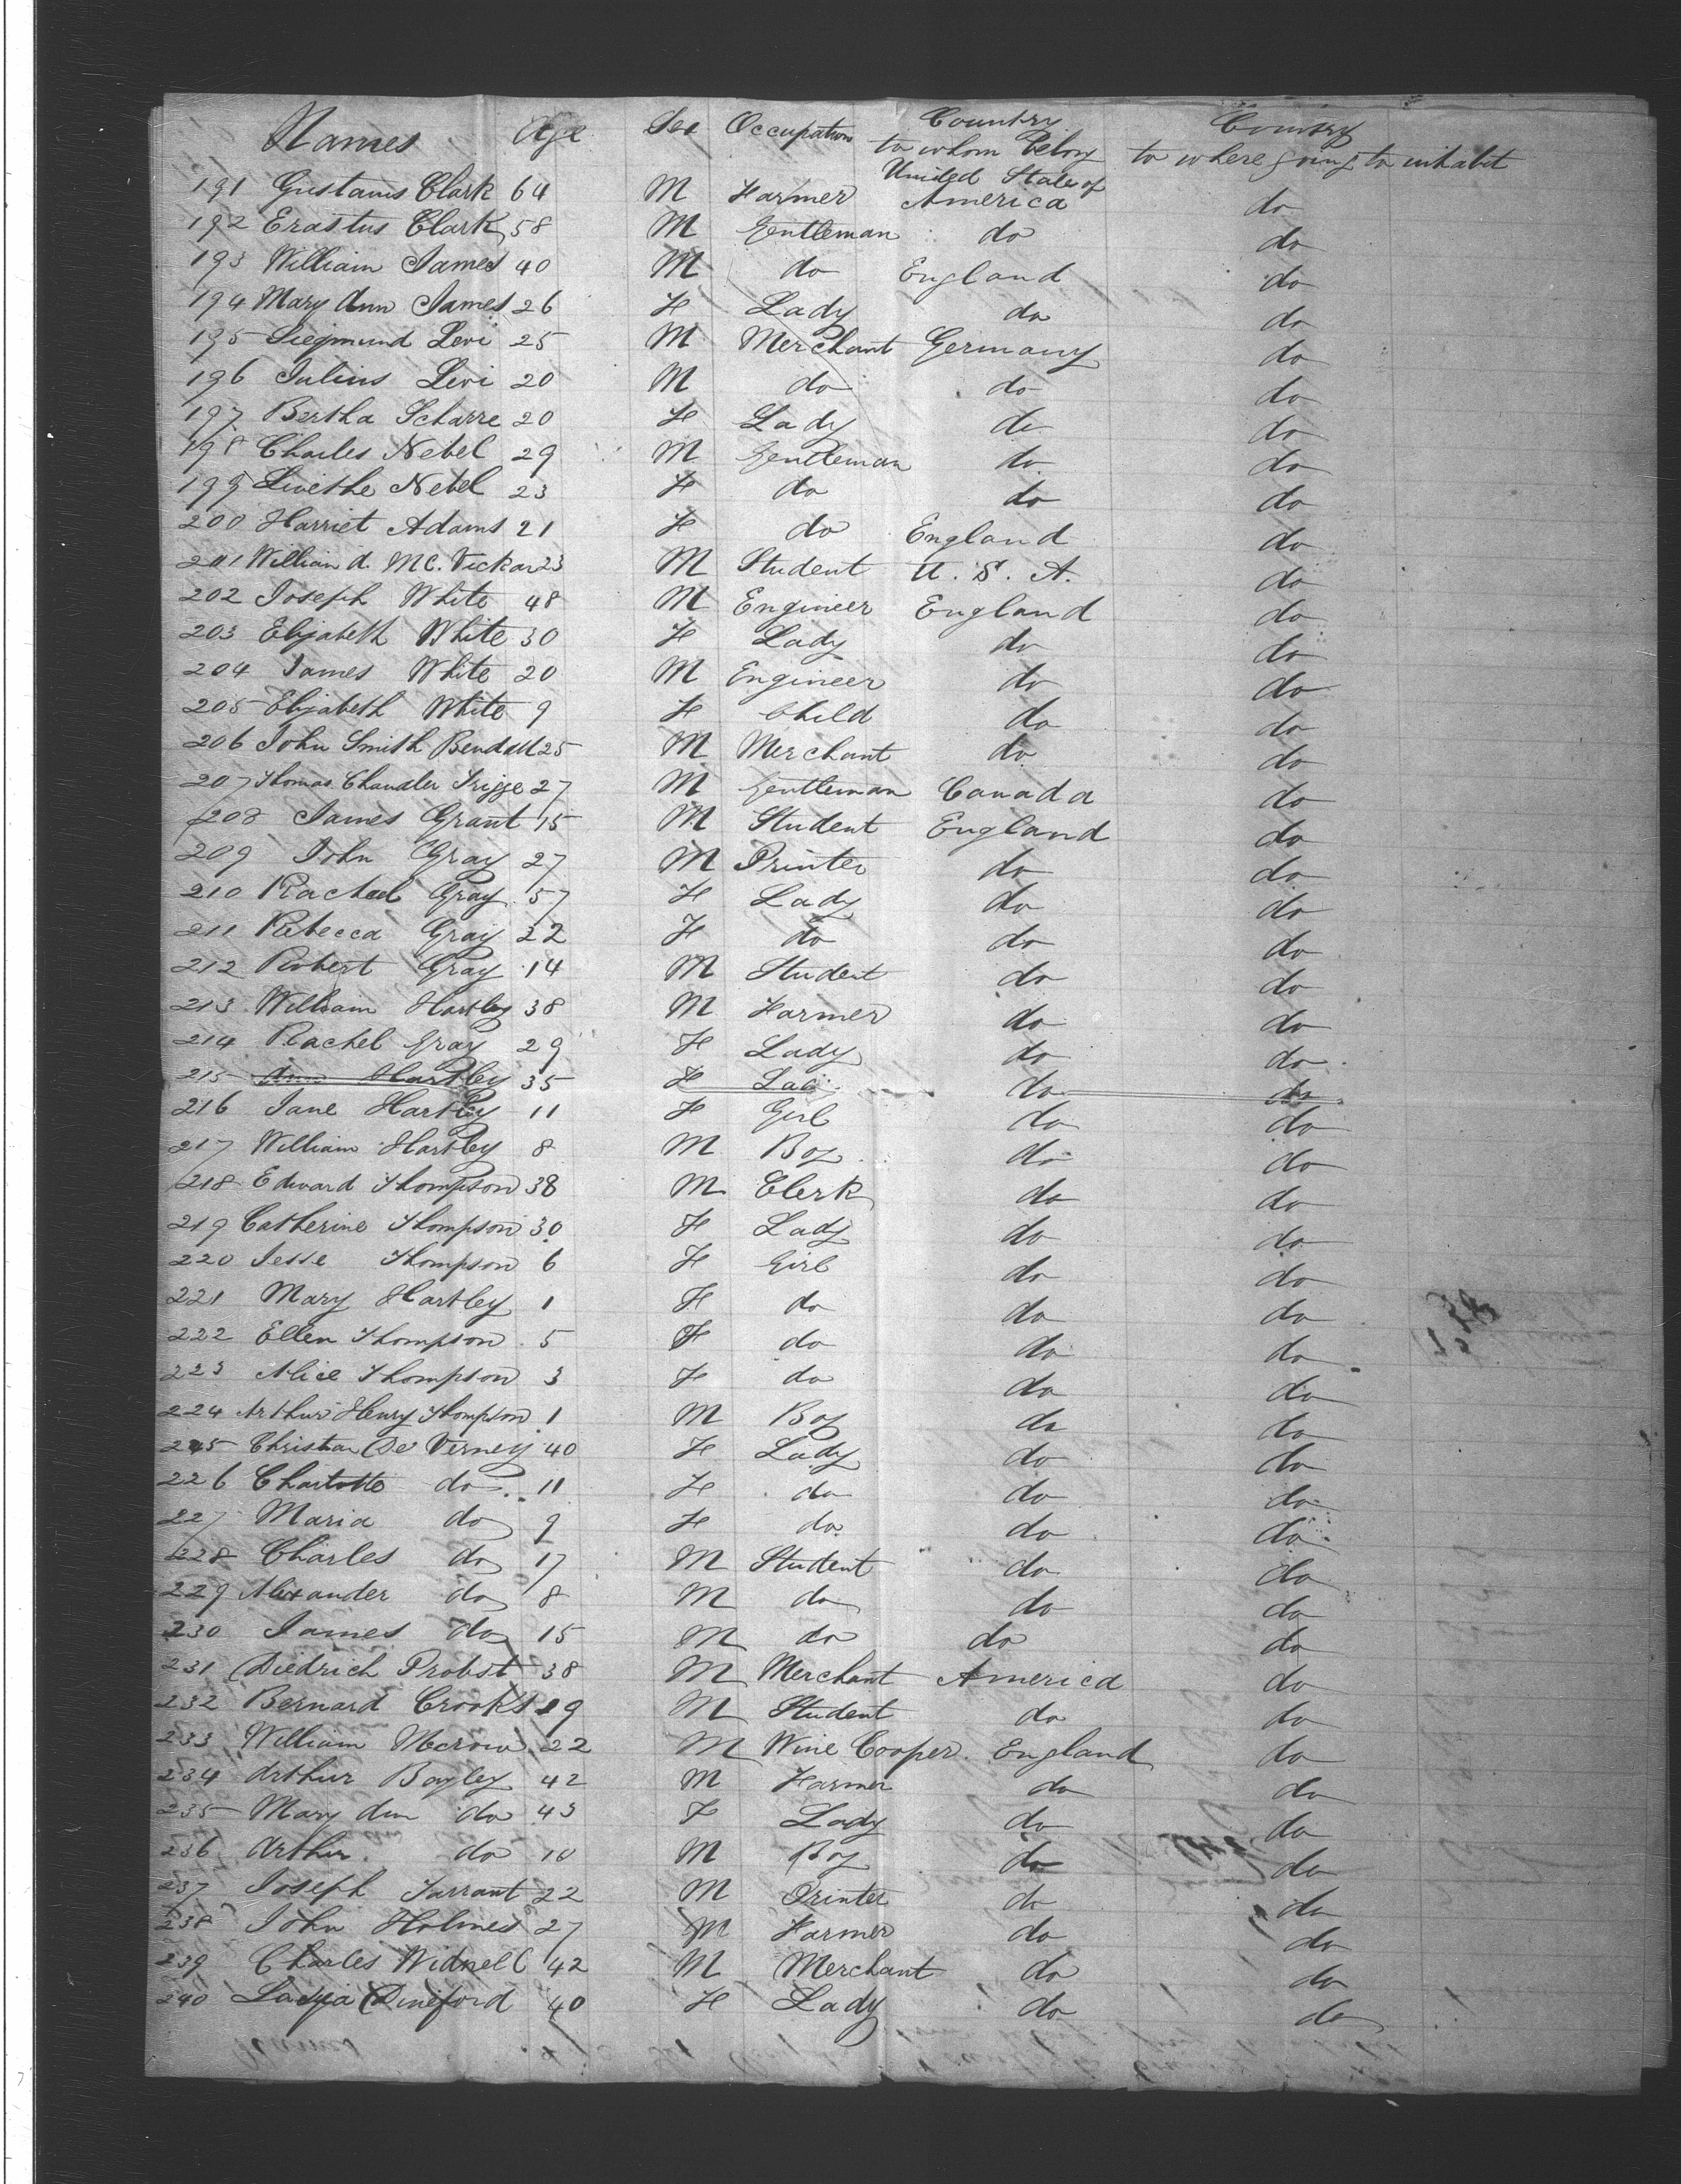 Names Age Sex Occupation Country to whom belong Country to where going to inhabit
191 Gustavus Clark 64 M Farmer United States of America do
192 Erastus Clark 58 M Gentleman do do
193 William James 40 M do England do
194 Mary Ann James 26 F Lady do do
195 Siegmund Levi 25 M Merchant Germany do
196 Julius Levi 20 M do do do
197 Bertha Scharre 20 F Lady do do
198 Charles Nebel 29 M Gentleman do do
199 Nebel 23 F do do do
200 Harriet Adams 21 F do England do
201 William A. McVickar 23 M Student U. S. A. do
202 Joseph White 48 M Engineer England do
203 Elizabeth White 30 F Lady do do
204 James White 20 M Engineer do do
205 Elizabeth White 9 F Child do do
206 John Smith Bendall 25 M Merchant do do
207 Thomas Chandler Trigge 27 M Gentleman Canada do
208 James Grant 15 M Student England do
209 John Gray 27 M Printer do do
210 Rachael Gray 57 F Lady do do
211 Rebecca Gray 22 F do do do
212 Robert Gray 14 M Student do do
213 William Hartley 38 M Farmer do do
214 Rachel Gray 29 F Lady do do
215 Ann Hartley 35 F Lad do do
216 Jane Hartley 11 F Girl do do
217 William Hartley 8 M Boy do do
218 Edward Thompson 38 M Clerk do do
219 Catherine Thompson 30 F Lady do do
220 Jesse Thompson 6 F Girl do do
221 Mary Hartley 1 F do do do
222 Ellen Thompson 5 F do do do
223 Alice Thompson 3 F do do do
224 Arthur Henry Thompson 1 M Boy do do
225 Christian De Verney 40 F Lady do do
226 Charlotte do 11 F do do do
227 Maria do 9 F do do do
228 Charles do 17 M Student do do
229 Alexander do 8 M do do do
230 James do 15 M do do do
231 Diedrich Probst 38 M Merchant America do
232 Bernard Crooks 19 M Student do do
233 William Mcrow 22 M Wine Cooper England do
234 Arthur Bayley 42 M Farmer do do
235 Mary Ann do 43 F Lady do do
236 Arthur do 10 M Boy do do
237 Joseph Tarrant 22 M Printer do do
238 John Holmes 27 M Farmer do do
239 Charles Widnell 42 M Merchant do do
240 Dineford 40 F Lady do do